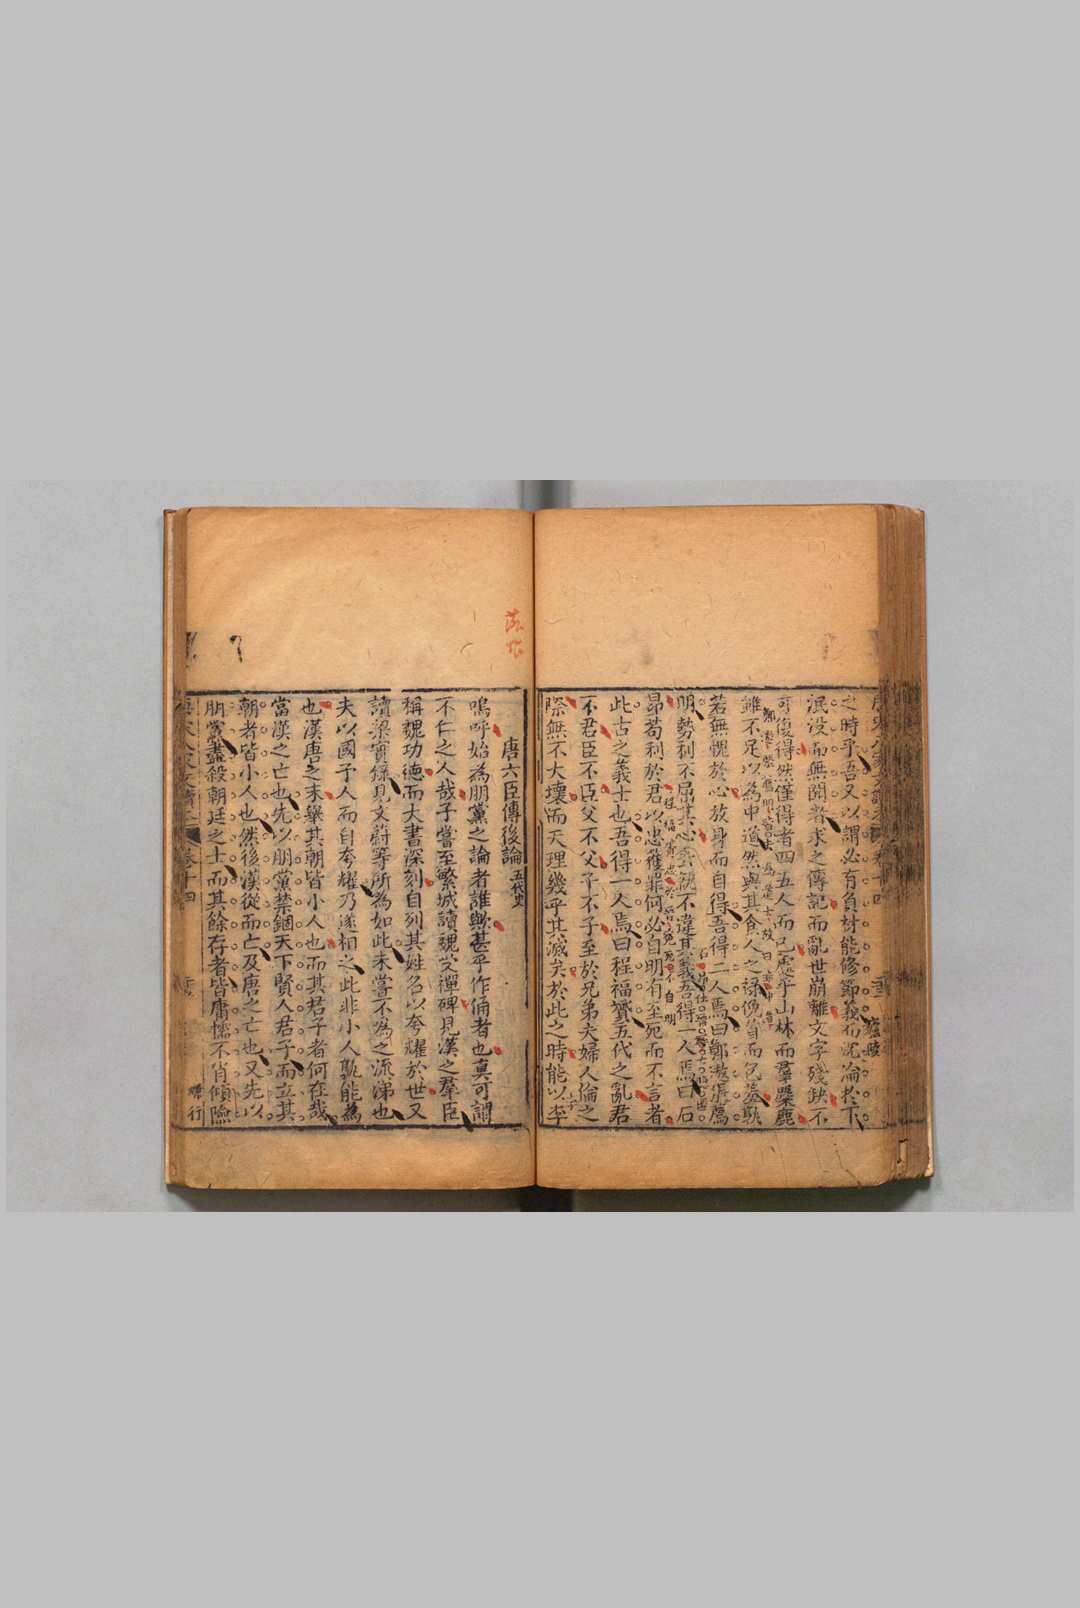 之時乎吾又以謂必有負材能修節義而沉淪於下
泯没而無聞者求之傳記而亂世崩離文字殘缺不
可復得然僅得者四五人而已處乎山林而羣麋鹿
雖不足以為中道然與其食人之祿俛首而包羞孰
若無愧於心放身而自得吾得二人焉曰鄭遨張薦
明勢利不屈其心去就不違其義吾得一人焉曰石
昂苟利於君以忠獲罪何必自明有至死而不言者
此古之義士也吾得一人焉曰程福贇五代之亂君
不君臣不臣父不父子不子至於兄弟夫婦人倫之
際無不大壞而天理幾乎其滅矣於此之時能以孝
唐六臣傳後論 五代史
嗚呼始為朋黨之論者誰歟甚乎作俑者也真可謂
不仁之人哉予嘗至繁城讀魏受禪碑見漢之羣臣
稱魏功德而大書深刻自列其姓名以夸耀於世又
讀梁實錄見文蔚等所為如此未嘗不為之流涕也
夫以國予人而自夸耀乃遂相之此非小人孰能為
也漢唐之末舉其朝皆小人也而其君子者何在哉
當漢之亡也先以朋黨禁錮天下賢人君子而立其
朝者皆小人也然後漢從而亡及唐之亡也又先以
朋黨盡殺朝廷之士而其餘存者皆庸懦不肖傾險